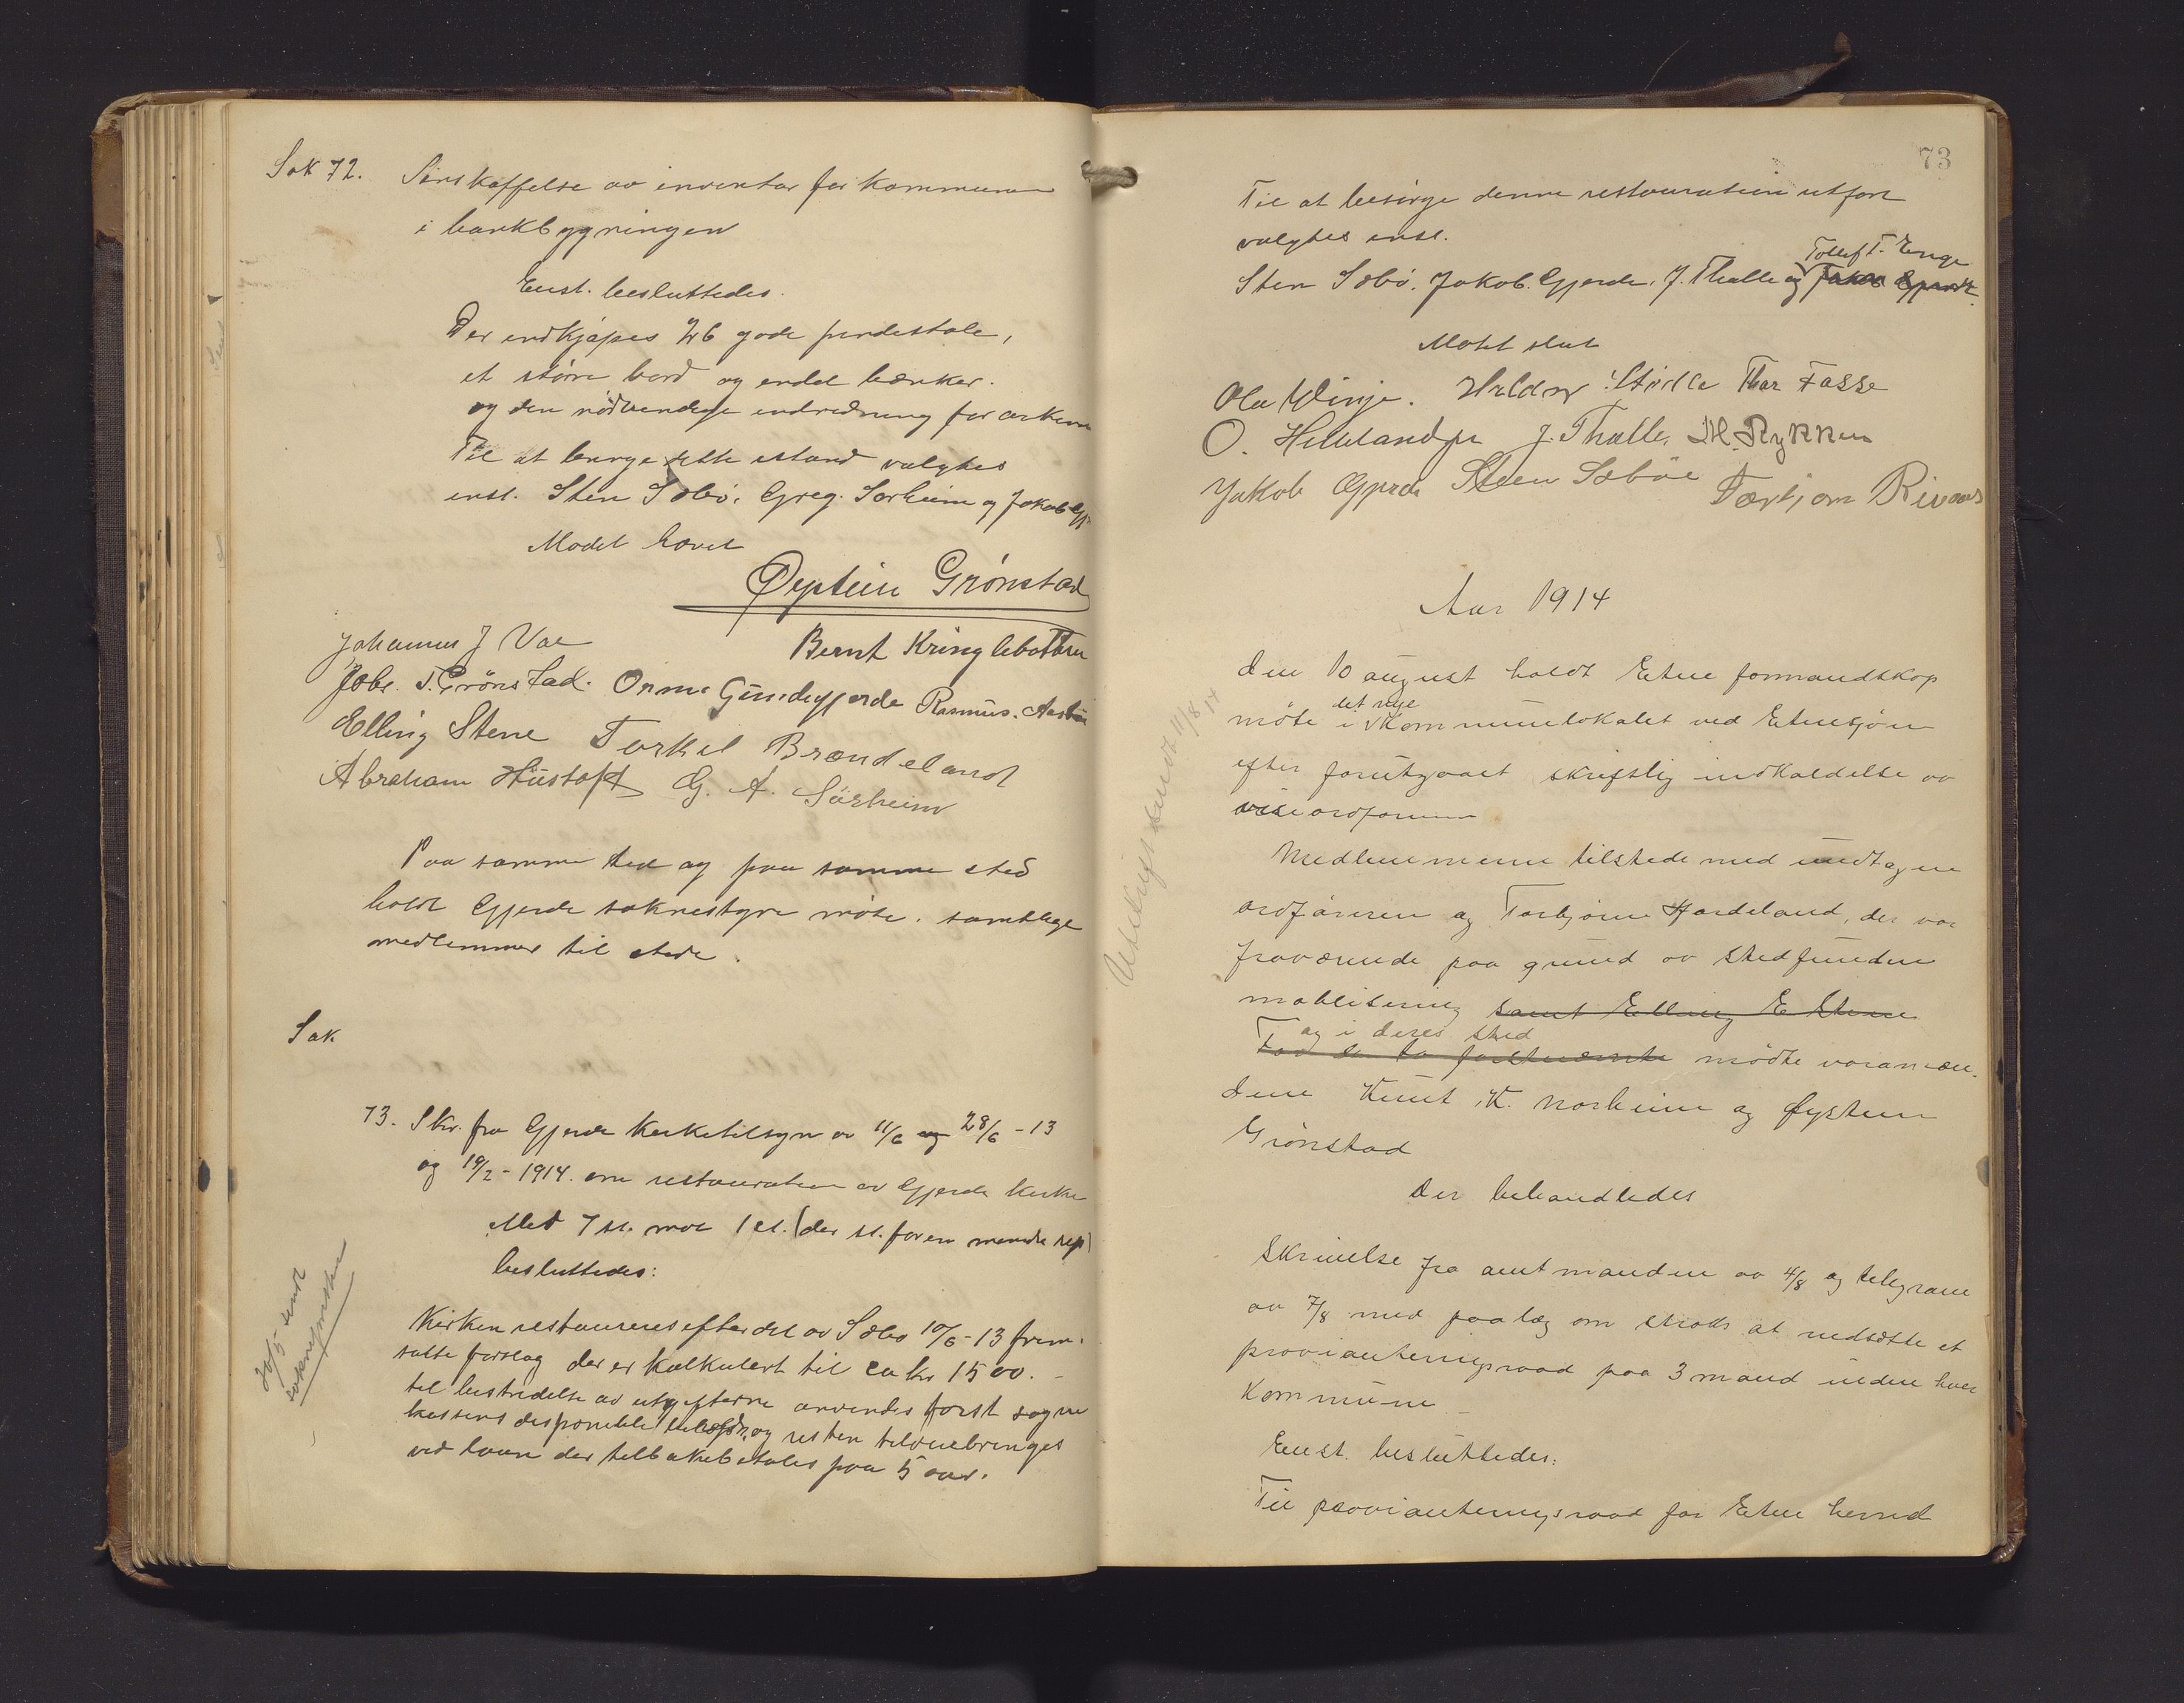 Sak 72. Inskaffelse av inventar for kommunen
i bankbygningen
Enst. besluttedes.
Der indkjøpes 26 gode pindestole,
et større bord og endel bænker.
og den nødvendige indredning for arkivet
Til at bringe dette istand valgtes
enst. Sten Sæbø, Greg. Sørheim og Jakob Gj
Mødet hævet
Øystein Grønstad
Johannes J Vae Bernt Kringlebotten
Johs. T. Grönstad. Orm Gundegjerde Rasmus.
Elling Stene Torkel Brændeland
Abraham Hüstoft G. A. Sörheim
Paa samme tid og paa samme sted
holdt Gjerde soknestyre møte. samtlige
medlemmer til stede.
Sak
73. Skr. fra Gjerde kirketilsyn av 11/6 og 28/6 - 13
og 19/2 - 1914. om restauration av Gjerde kirke
Med 7 st. mot 1 st. (der st. for en mindre rep)
besluttedes:
Kirken restaureres efter det av Sæbø 10/6 - 13 frem-
satte forslag der er kalkulert til ca kr 1500. -
til bestridelse av utgifterne anvendes først sogne
kassens disponible beholdn. og resten tilveiebringes
ved laan der tilbakebetales paa 5 aar.
sendt
73
Til at besørge denne restauration utført
valgtes enst.
Tollef T. Enge
Sten Sæbø. Jakob. Gjerde, J. Thalle og Jakob Gjerde.
Møtet slut
Ola Vinje. Haldor Störle Thor Fosse
O. Hellelandjr J. Thalle, M. Rykken
Jakob Gjerde Steen Sæböe Torbjørn Rivenes
Aar 1914
Den 10 august holdt Etne formandskap
det nye
møte i kommunelokalet ved Etnesjøen
efter forutgaaet skriftlig indkaldelse av
viseordføreren
Medlemmerne tilstede med undtagen
ordføreren og Torbjørn Hardeland, der var
fraværende paa grund av stedfunden
mobilisering samt Elling E Stene
og i deres sted
For de to førstnævnte mødte varamæn-
dene Knut K. Norheim og Øystein
Grönstad
Utskrift sendt 11/8 14
Der behandledes
Skrivelse fra amtmanden av 4/8 og telegram
av 7/8 med paalæg om straks at nedsætte et
provianteringsraad paa 3 mand inden hver
kommune
Enst. besluttedes:
Til provianteringsraad for Etne herred